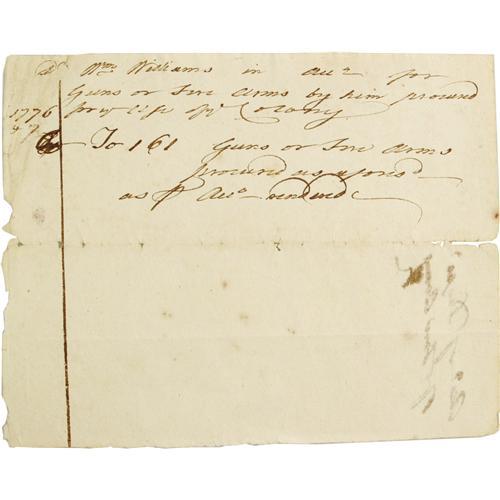 Dr Wm Williams in Acct for
Guns or Fire Arms by him procured
1776 for ye use of ye Colony
To 161 Guns or Fire Arms
procured as aforesd
as pr Acct rendered